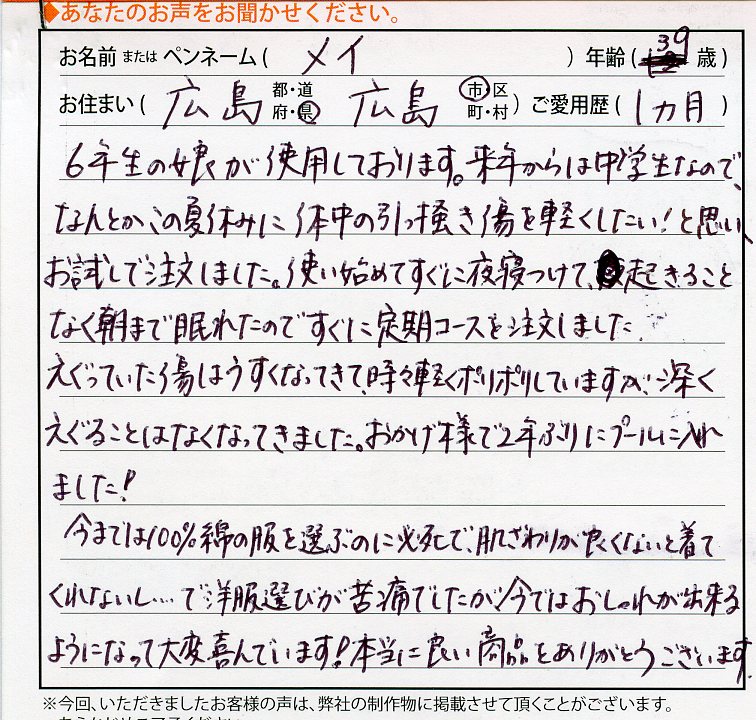 ◆あなたのお声をお聞かせください。
お名前 または ペンネーム( メイ ) 年齢( 39 歳)
お住まい( 広島 都・道府・県 広島 市・区町・村 ) ご愛用歴( 1ヵ月 )
6年生の娘が使用しております。来年からは中学生なので、
なんとかこの夏休みに体中の引っ掻き傷を軽くしたい!と思い、
お試しで注文しました。使い始めてすぐに夜寝つけて、起きること
なく朝まで眠れたのですぐに定期コースを注文しました
えぐっていた傷はうすくなってきて、時々軽くポリポリしていますが、深く
えぐることはなくなってきました。おかげ様で2年ぶりにプールに入れ
ました!
今までは100%綿の服を選ぶのに必死で、肌ざわりが良くないと着て
くれないし…で洋服選びが苦痛でしたが今ではおしゃれが出来る
ようになって大変喜んでいます!本当に良い商品をありがとうございます。
※今回、いただきましたお客様の声は、弊社の制作物に掲載させて頂くことがございます。